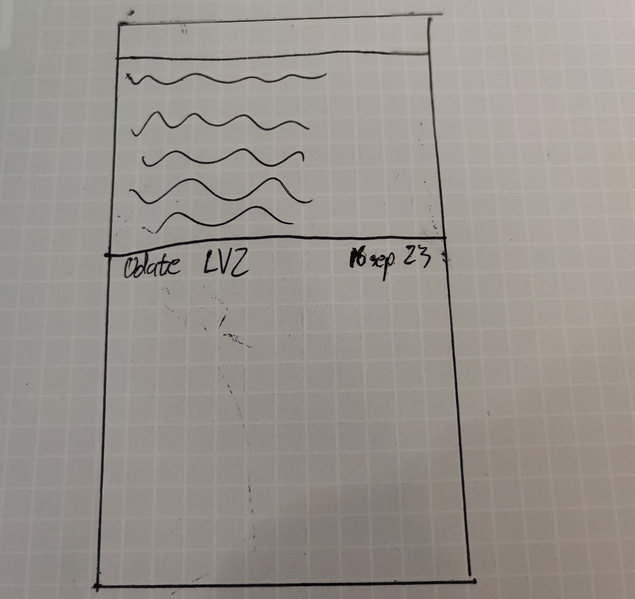 Update LV2 16 sep 23